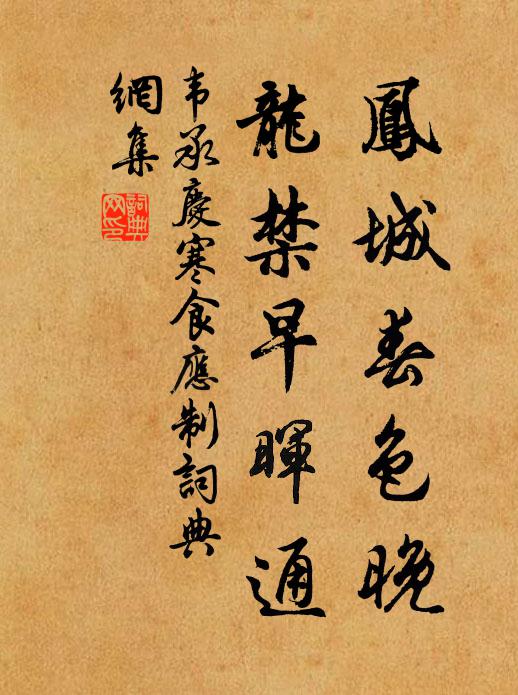 鳳城春色晚
龍禁早暉通
韦承慶寒食應制詞典
網集
詞典
网印